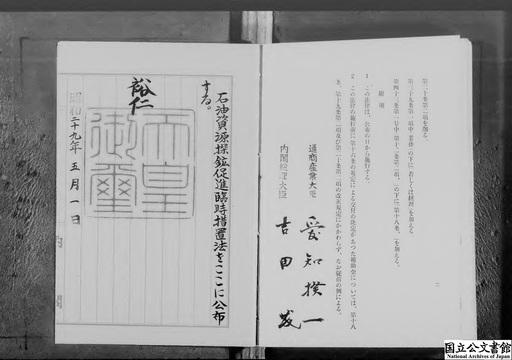 第三十条第二項を削る。
第三十九条第一項中「業務」の下に「若しくは経理」を加える。
第四十三条第一号中「第十二条第二項」の下に「、第十八条」を加える。
附則
1 この法律は、公布の日から施行する。
2 この法律の施行前に第十六条の規定による交付の決定があつた補助金については、第十八
条、第十九条第二項及び第二十条第二項の改正規定にかかわらず、なお従前の例による。
通商産業大臣 愛知揆一
内閣総理大臣 吉田茂
石油資源探鉱促進臨時措置法をここに公布
する。
裕仁
天皇御璽
昭和二十九年五月一日
国立公文書館
National Archives of Japan